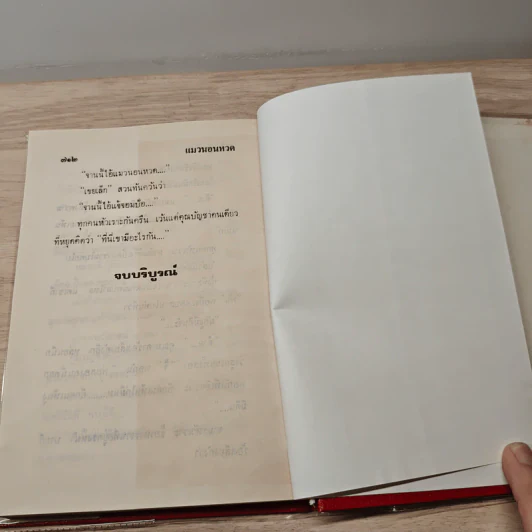 ๗๑๒ แมวนอนหวด
"จานนี้ไอ้แมวนอนหวด...."
"เชยเลีย" สวนทันควันว่า
"จานนี้ไอ้แจ้จอมบ๊ย...."
ทุกคนหัวเราะกันครืน เว้นแต่คุณบัญชาคนเดียว
ที่หยุดคิดว่า "ที่นี่เขามีอะไรกัน...."
จบบริบูรณ์